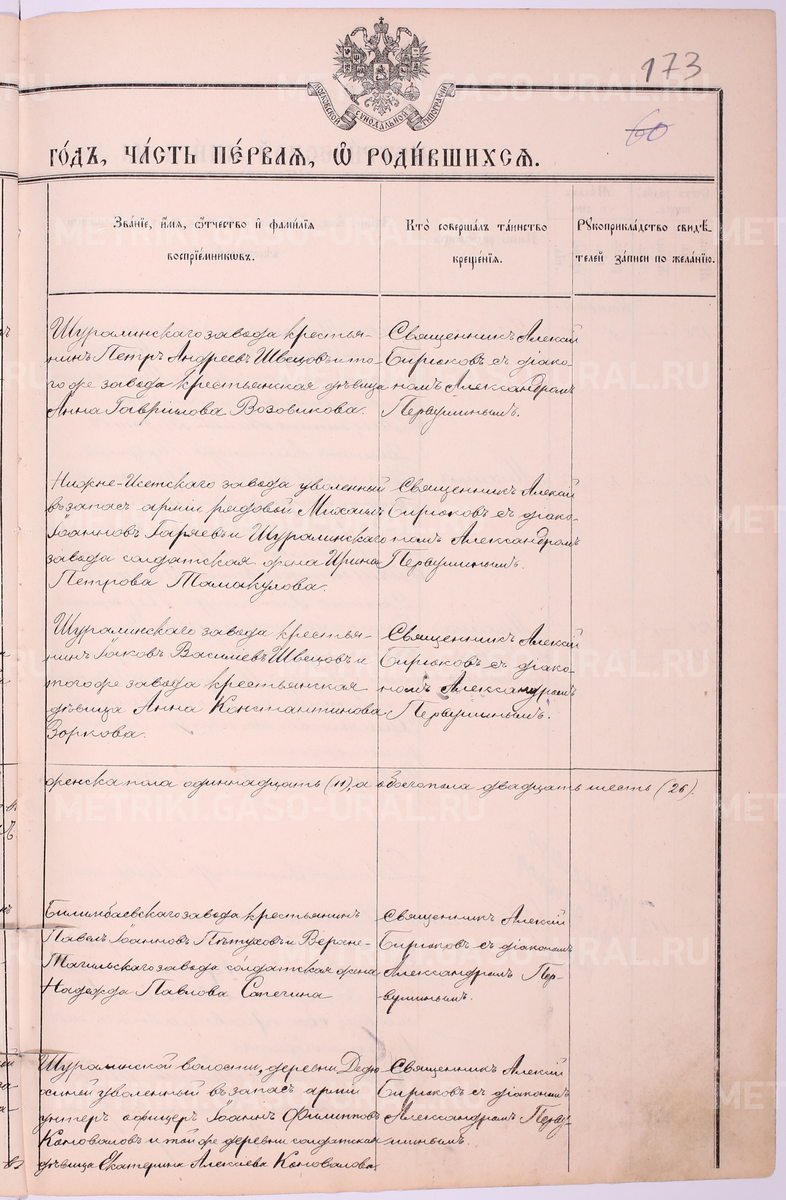 173
60
МОСКОВСКОЙ СѴНОДАЛЬНОЙ ТИПОГРАФІИ
ГО́ДЪ, ЧА́СТЬ ПЕ́РВАѦ, Ѡ҆ РОДИ́ВШИХСѦ.
Зва́нїе, и҆́мѧ, ѻ҆́тчество и҆ фами́лїѧ
воспрїе́мникѡвъ.
Кто̀ соверша́лъ та́инство
креще́нїѧ.
Рꙋкоприкла́дство свидѣ́-
телей за́писи по жела́нїю.
Шуралинскаго завода крестья-
нинъ Петръ Андреевъ Швецовъ и то-
гоже завода крестьянская дѣвица
Анна Гавріилова Возовикова.
Священникъ Алексій
Бирюковъ съ діако-
номъ Александромъ
Первушинымъ.
Нижне-Исетскаго завода уволенный
въ запасъ арміи рядовой Михаилъ
Іоанновъ Гаряевъ и Шуралинскаго
завода солдатская жена Ирина
Петрова Мамакулова.
Священникъ Алексій
Бирюковъ съ діако-
номъ Александромъ
Первушинымъ.
Шуралинскаго завода крестья-
нинъ Іаковъ Василіевъ Швецовъ и
тогоже завода крестьянская
дѣвица Анна Константинова
Зоркова.
Священникъ Алексій
Бирюковъ съ діако-
номъ Александромъ
Первушинымъ.
женска пола одиннадцать (11), а обоего пола двадцать шесть (26).
Билимбаевскаго завода крестьянинъ
Павелъ Іоанновъ Пѣтуховъ и Верхне-
Тагильскаго завода солдатская жена
Надежда Павлова Сапегина
Священникъ Алексій
Бирюковъ съ діакономъ
Александромъ Пер-
вушинымъ.
Шуралинской волости, деревни
уволенный въ запасъ арміи
унтеръ офицеръ Іоаннъ Филипповъ
Коноваловъ и той же деревни солдатская
дѣвица Екатерина Алексіева Коновалова
Священникъ Алексій
Бирюковъ съ діакономъ
Александромъ Перву-
шинымъ.
METRIKI.GASO-URAL.RU